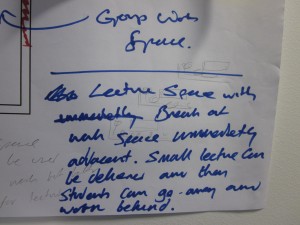 Group Work
Space.
Lecture Space with
immediately Break out
work Space immediately
adjacent. Small lecture can
be deliverer and then
Students can go away and
work behind.
Space
be used
for lecture